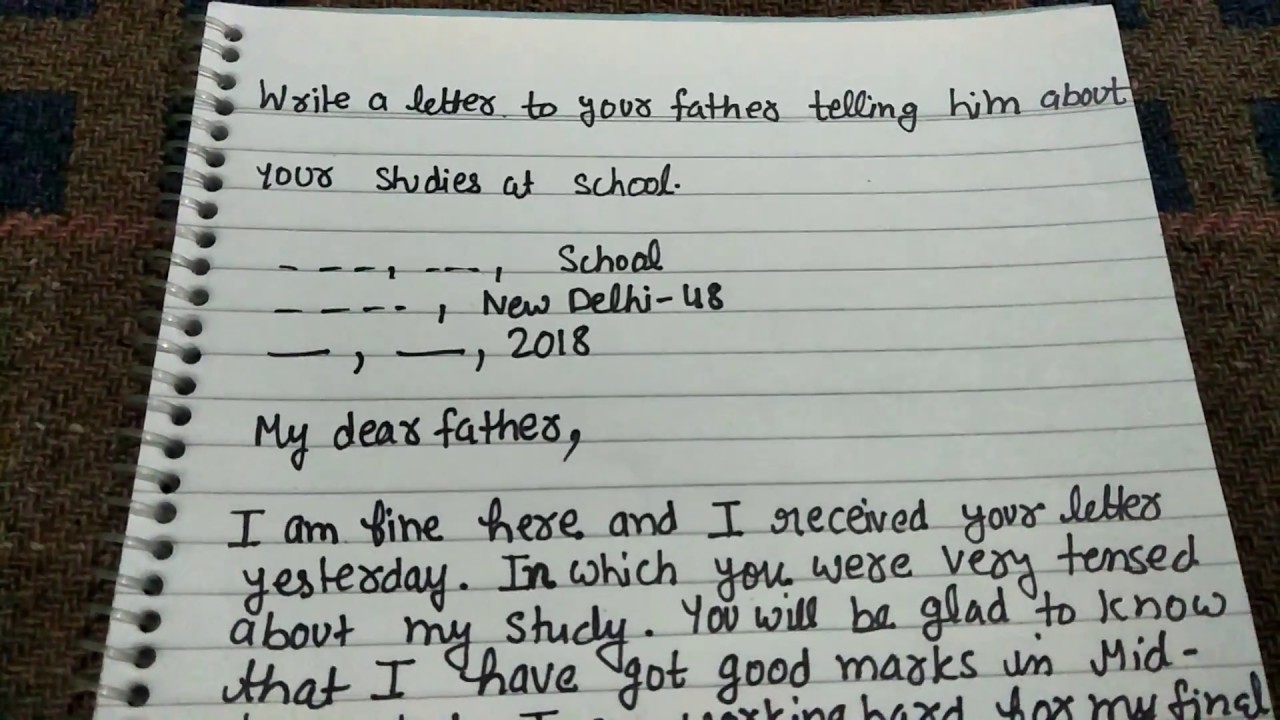 Write a letter to your father telling him about
your studies at school.
- - - -, - - -, School
- - - - -, New Delhi-48
—, —, 2018
My dear father,
I am fine here and I received your letter
yesterday. In which you were very tensed
about my study. You will be glad to know
that I have got good marks in Mid-
working hard for my final